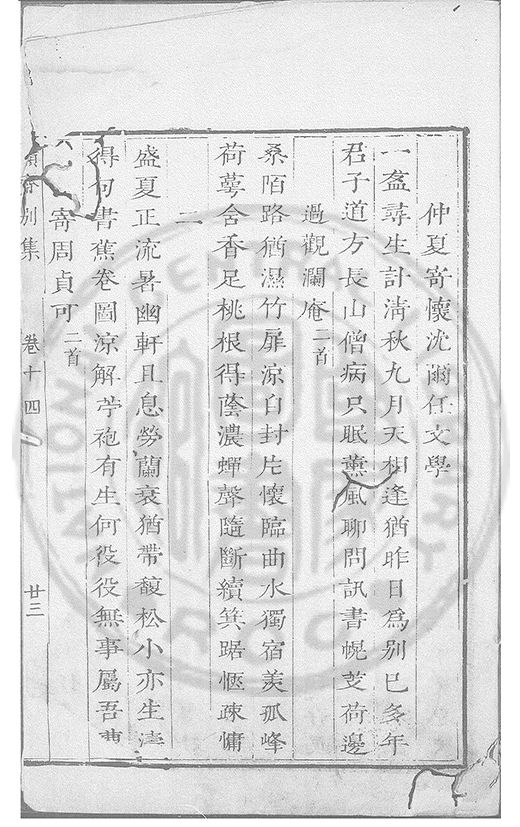 仲夏寄懷沈爾任文學
一盋尋生計清秋九月天相逢猶昨日爲别已多年
君子道方長山僧病只眠薰風聊問訊書幌芰荷邊
過觀瀾庵二首
桑陌路猶濕竹扉涼自封片懷臨曲水獨宿羨孤峰
荷萼含香足桃根得蔭濃蟬聲隨斷續箕踞愜疎慵
二
盛夏正流暑幽軒且息勞蘭衰猶帶馥松小亦生濤
得句書蕉卷圖涼解苧袍有生何役役無事屬吾曹
寄周貞可二首
齋别集 卷十四 廿三